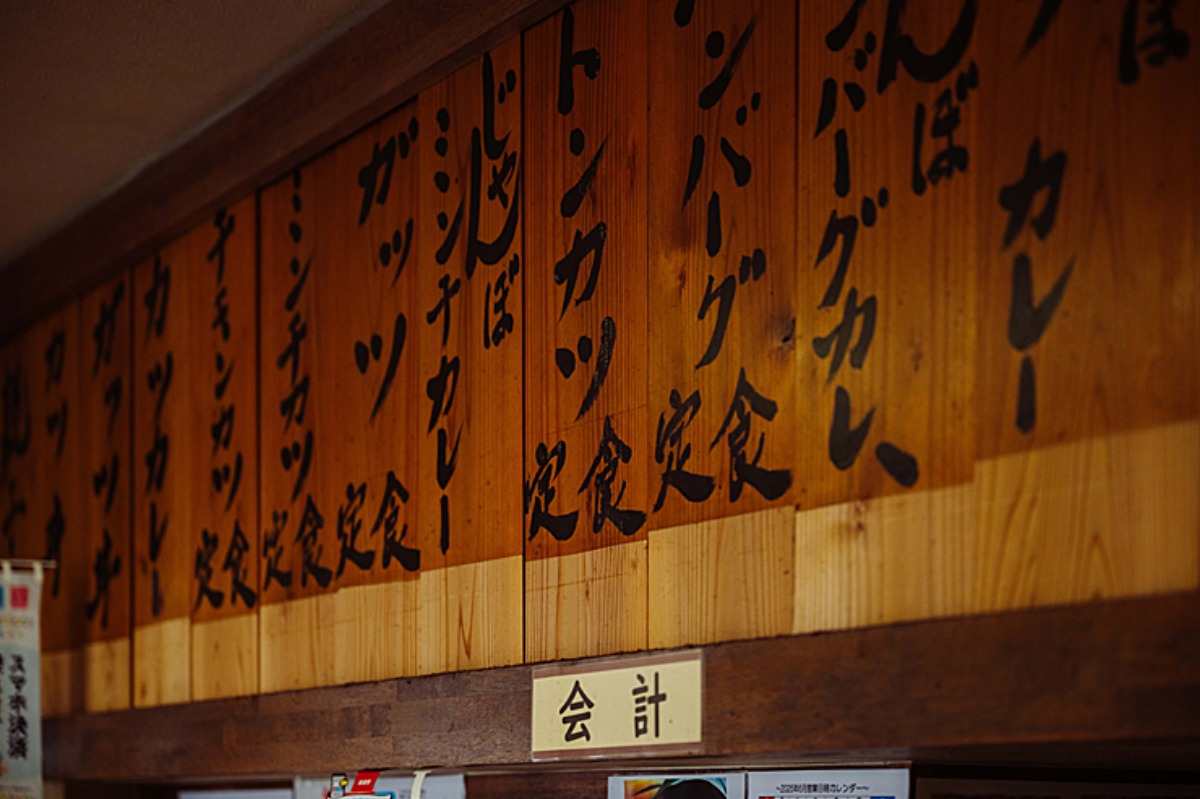 ぼ
カレー
んぼ
ンバーグカレー
ンバーグ定食
トンカツ定食
じゃんぼ
ミンチカレー
ガッツ定食
ミンチカツ定食
チキンカツ定食
カツカレー
ガッツ丼
カツ丼
会計
スマホ決済